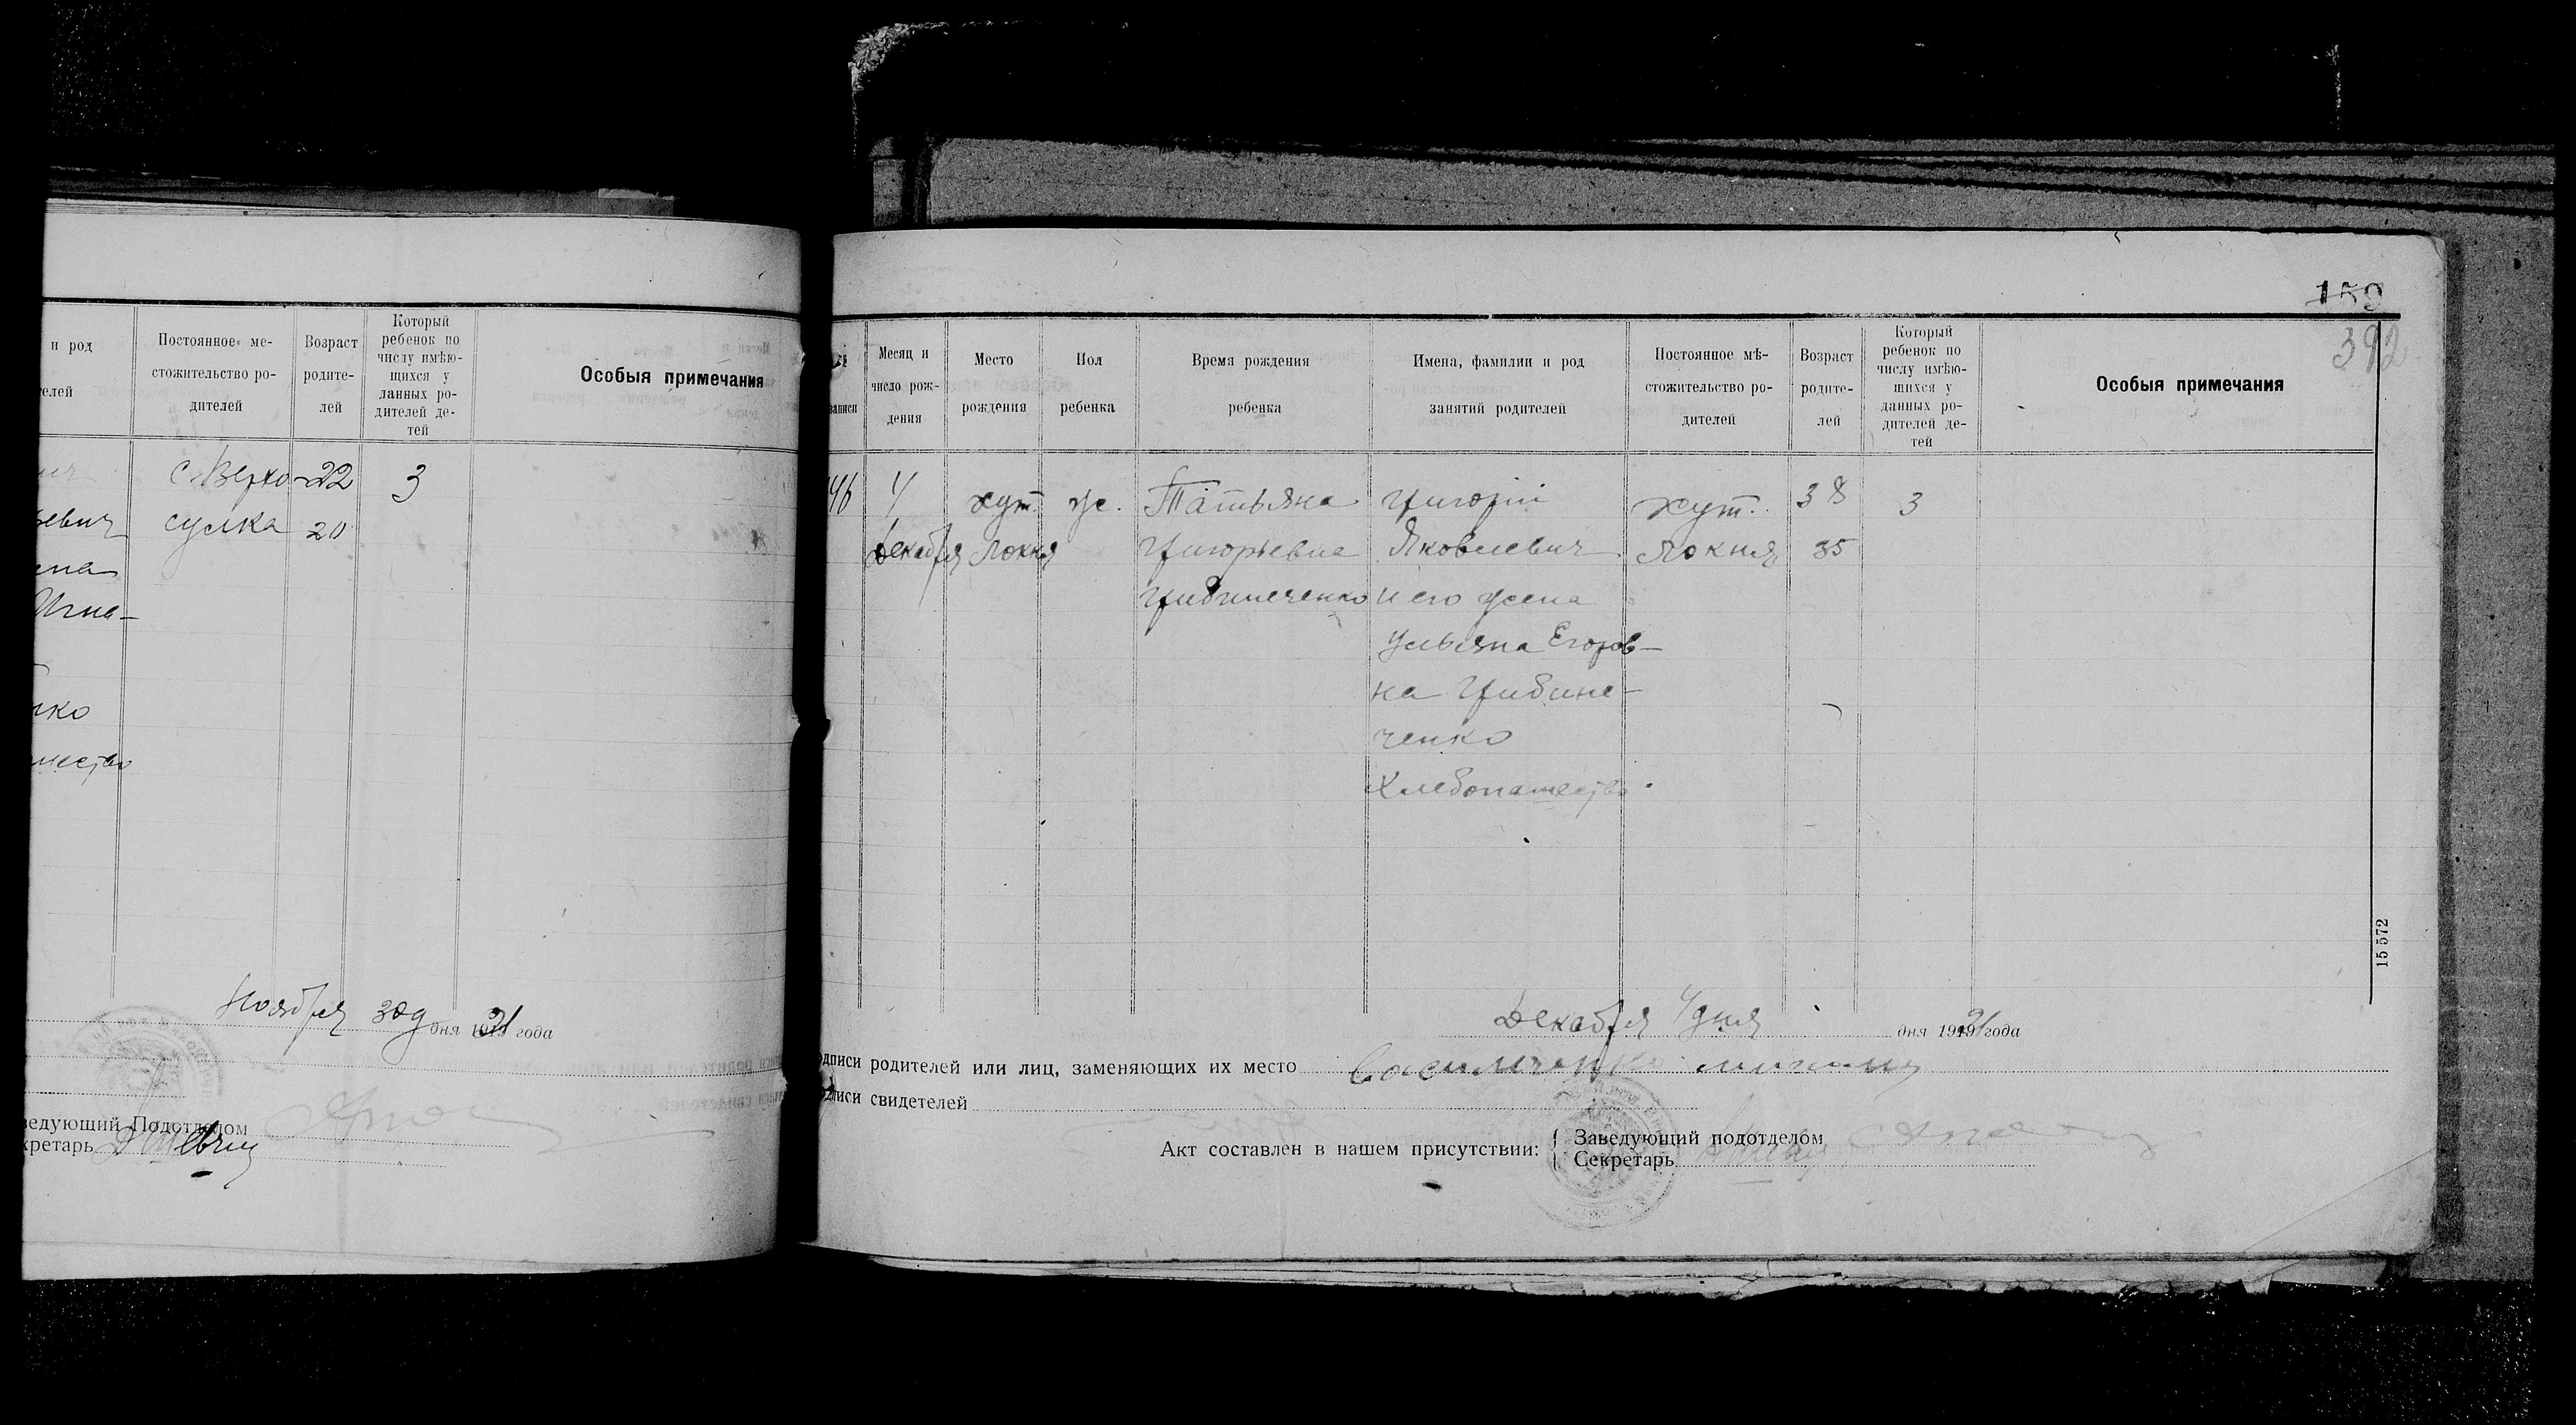 и род
телей
Постоянное ме-
стожительство ро-
дителей
Возраст
родите-
лей
Который
ребенок по
числу имѣю-
щихся у
данных ро-
дителей де-
тей
Особыя примечания
евич
Игна-
нко
с. Верхо-
сулка
22
20
3
Ноября 30 д дня 1921 года
Заведующий Подотделом
кретарь
159
392
записи
Месяц и
число рож-
дения
Место
рождения
Пол
ребенка
Время рождения
ребенка
Имена, фамилии и род
занятий родителей
Постоянное мѣ-
стожительство ро-
дителей
Возраст
родите-
лей
Который
ребенок по
числу имѣю-
щихся у
данных ро-
дителей де-
тей
Особыя примечания
4
Декабря
хут.
Локня
ж.
Татьяна
Григорьевна
Грибиниченко
Григорій
Яковлевич
и его жена
Ульяна Егоров-
на Грибине-
ченко
Хлебопашество
хут.
Локня
38
35
3
15 572
Декабря 4 дня дня 1921 года
одписи родителей или лиц, заменяющих их место
писи свидетелей
Акт составлен в нашем присутствии:
Заведующий подотделом
Секретарь